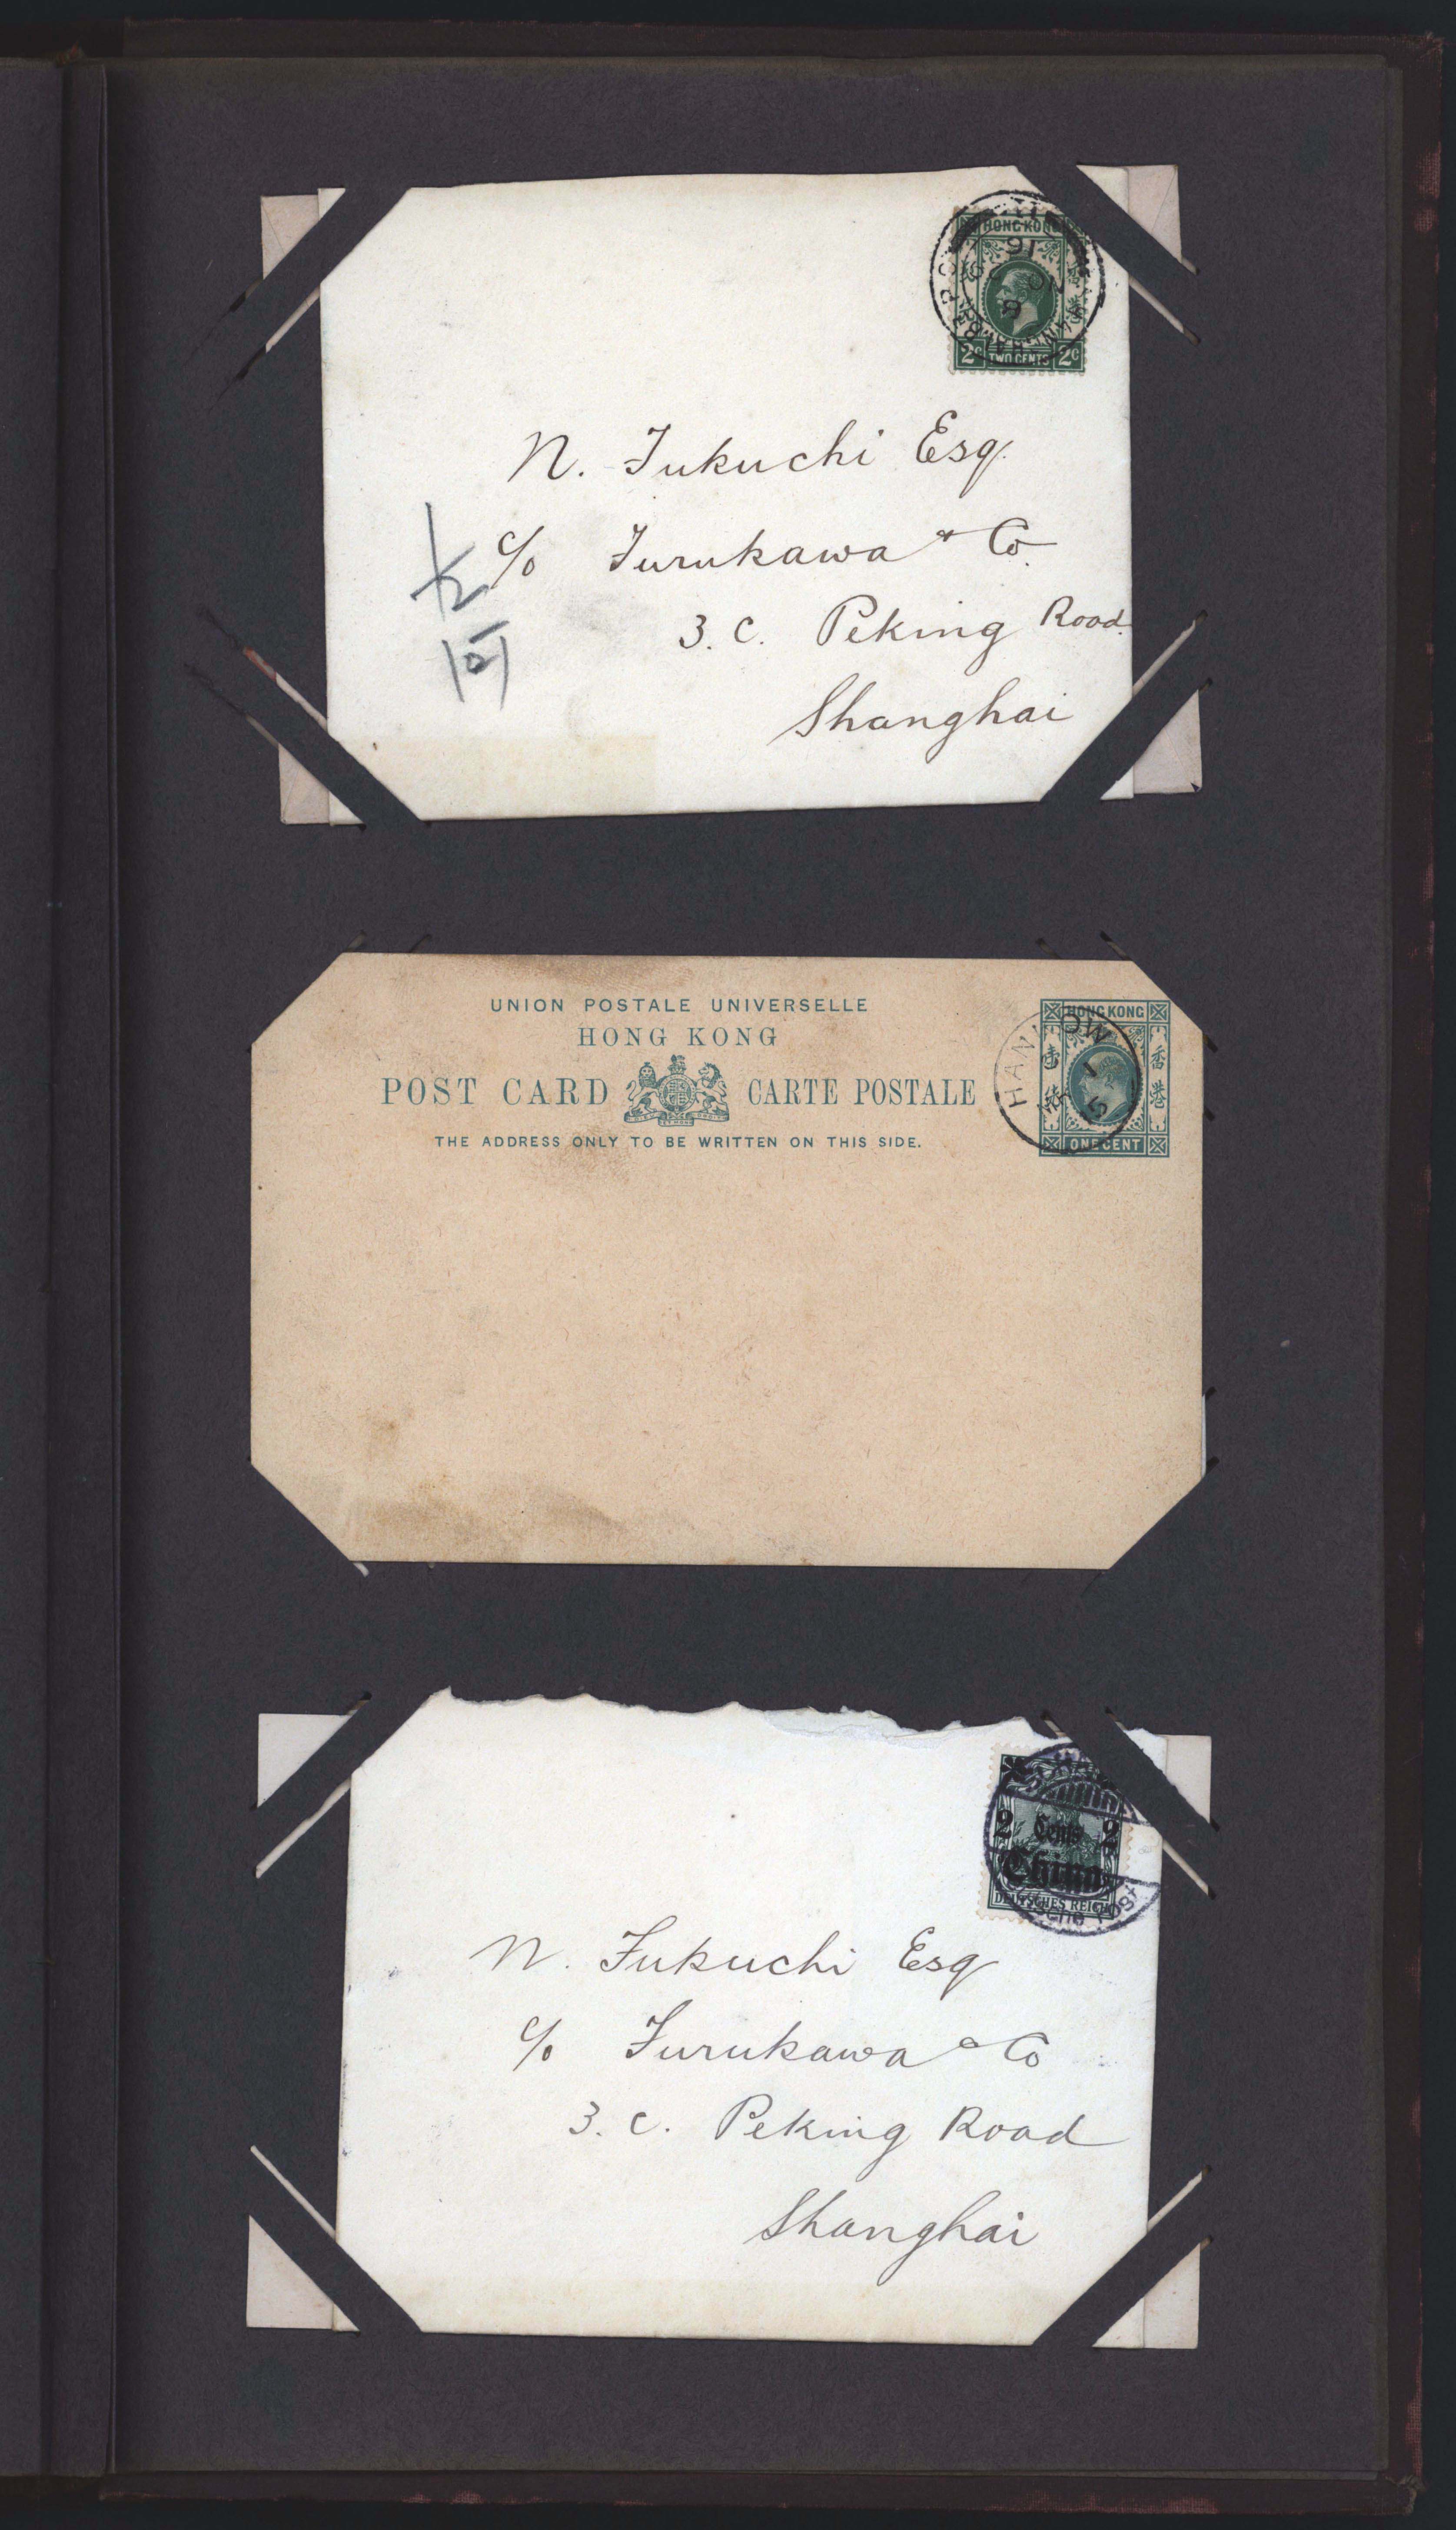 HONG KONG
2c TWO CENTS 2c
N. Fukuchi Esq.
c/o Furukawa & Co.
3. C. Peking Road.
Shanghai
UNION POSTALE UNIVERSELLE
HONG KONG
POST CARD CARTE POSTALE
THE ADDRESS ONLY TO BE WRITTEN ON THIS SIDE.
HONG KONG
香港
ONE CENT
2 Cents 2
China
DEUTSCHES REICH
N. Fukuchi Esq
c/o Furukawa & Co
3. C. Peking Road
Shanghai